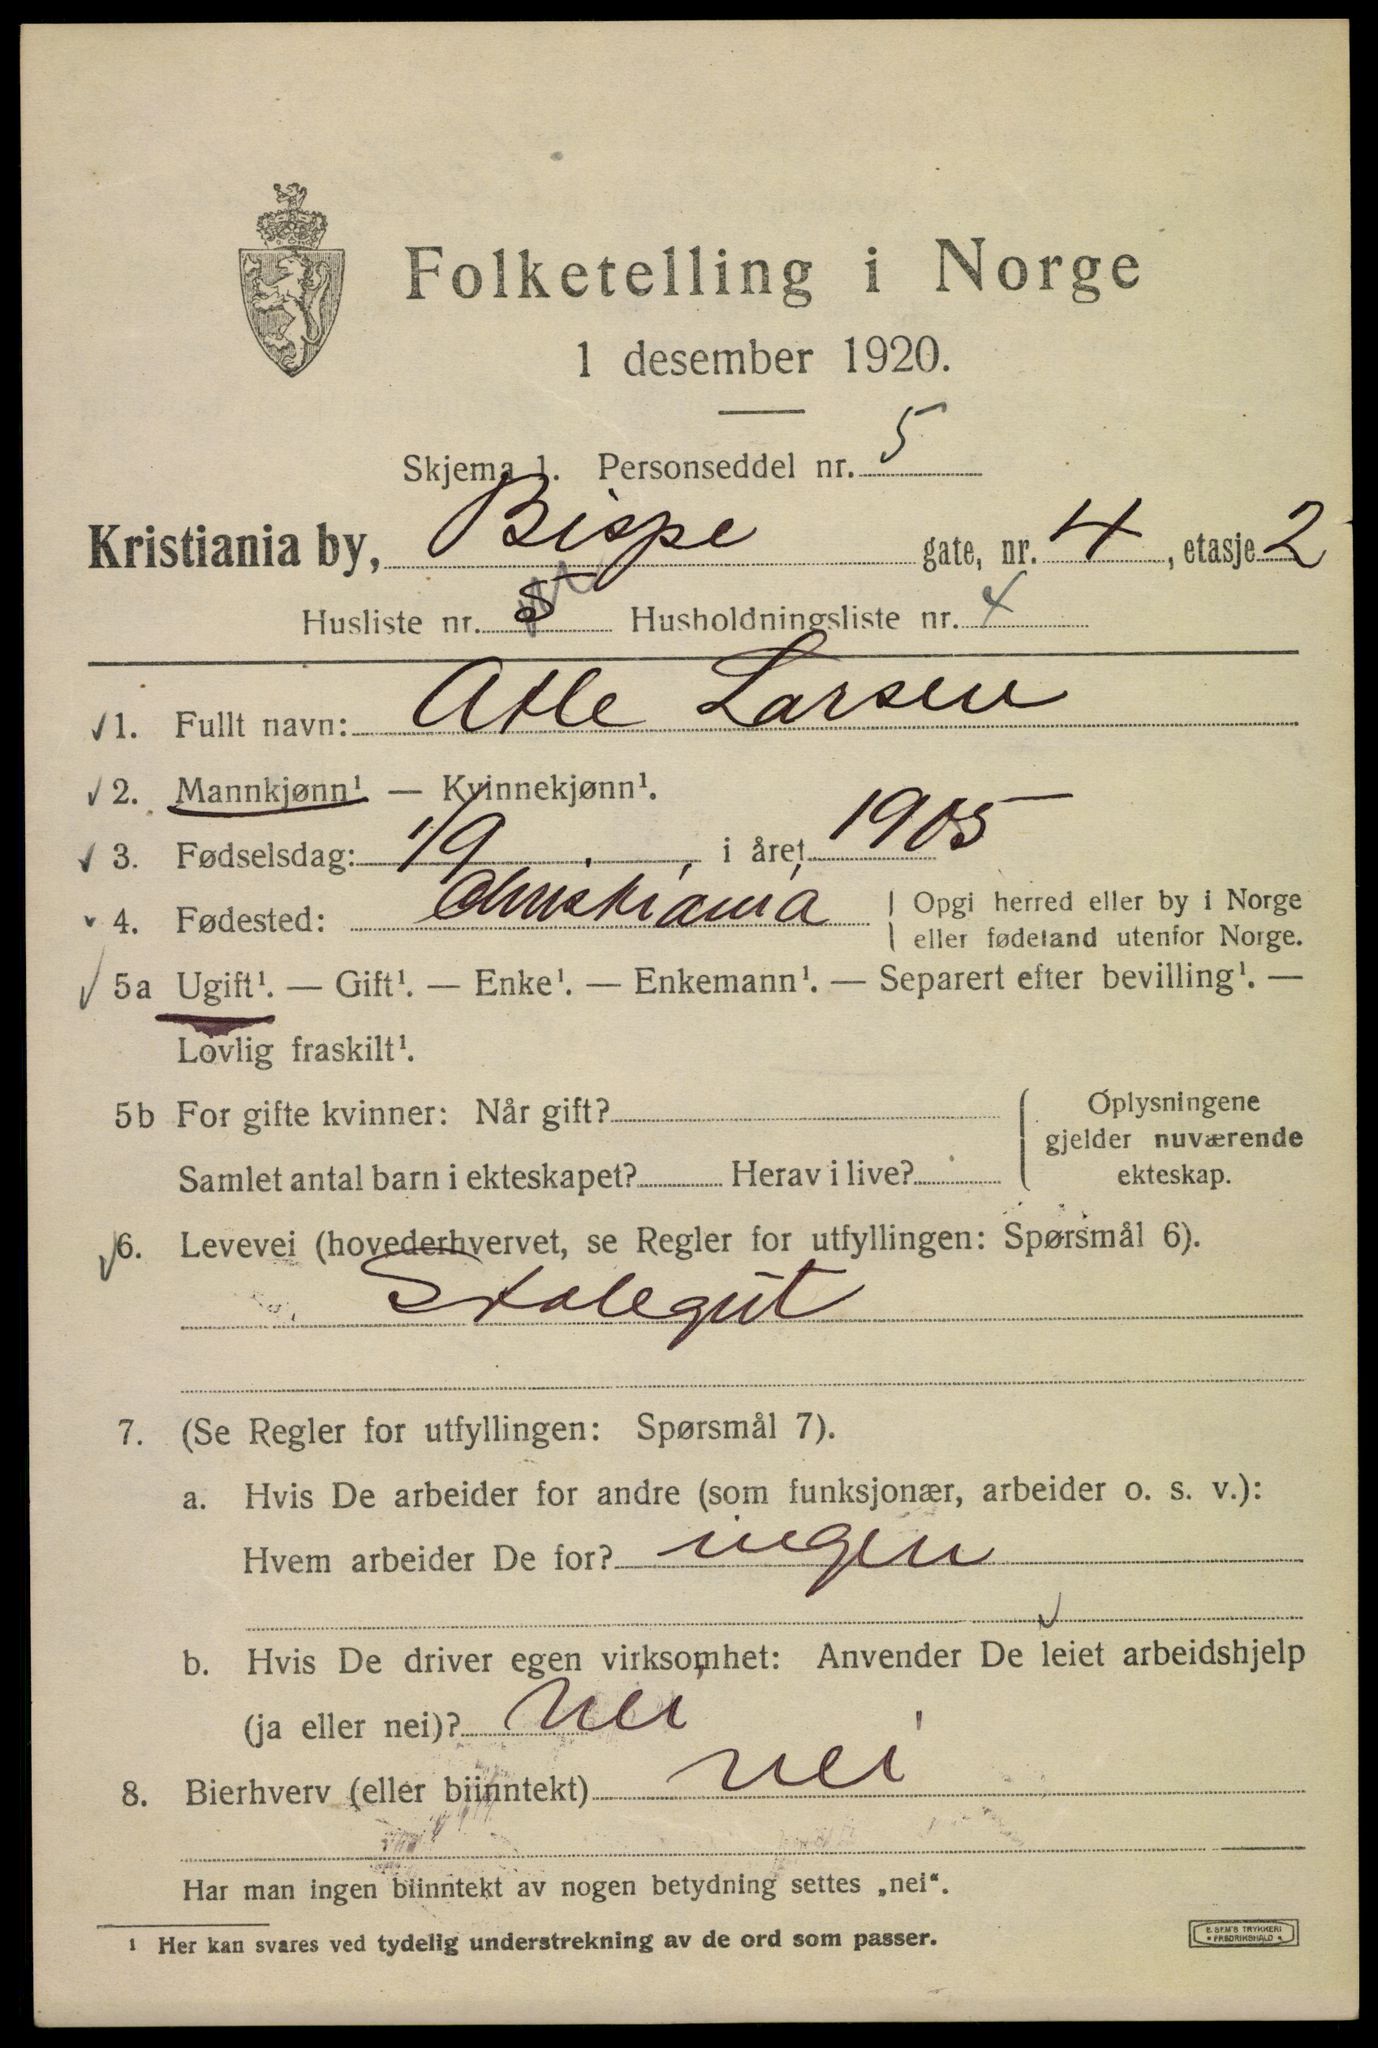 Folketelling i Norge
1 desember 1920.
Skjema 1. Personseddel nr. 5
Kristiania by, Bispe gate, nr. 4, etasje 2
Husliste nr. 5 Husholdningsliste nr. 4
1. Fullt navn: Atle Larsen
2. Mannkjønn¹ — Kvinnekjønn¹.
3. Fødselsdag: 1/9 i året 1905
4. Fødested: Christiania Opgi herred eller by i Norge
eller fødeland utenfor Norge.
5a Ugift¹. — Gift¹. — Enke¹. — Enkemann¹. — Separert efter bevilling¹. —
Lovlig fraskilt¹.
5b For gifte kvinner: Når gift? Oplysningene
gjelder nuværende
Samlet antal barn i ekteskapet? Herav i live? ekteskap.
6. Levevei (hovederhvervet, se Regler for utfyllingen: Spørsmål 6).
Skolegut
7. (Se Regler for utfyllingen: Spørsmål 7).
a. Hvis De arbeider for andre (som funksjonær, arbeider o. s. v.):
Hvem arbeider De for? ingen
b. Hvis De driver egen virksomhet: Anvender De leiet arbeidshjelp
(ja eller nei)? nei
8. Bierhverv (eller biinntekt) nei
Har man ingen biinntekt av nogen betydning settes „nei“.
¹ Her kan svares ved tydelig understrekning av de ord som passer.
E. SEM'S TRYKKERI
FREDRIKSHALD